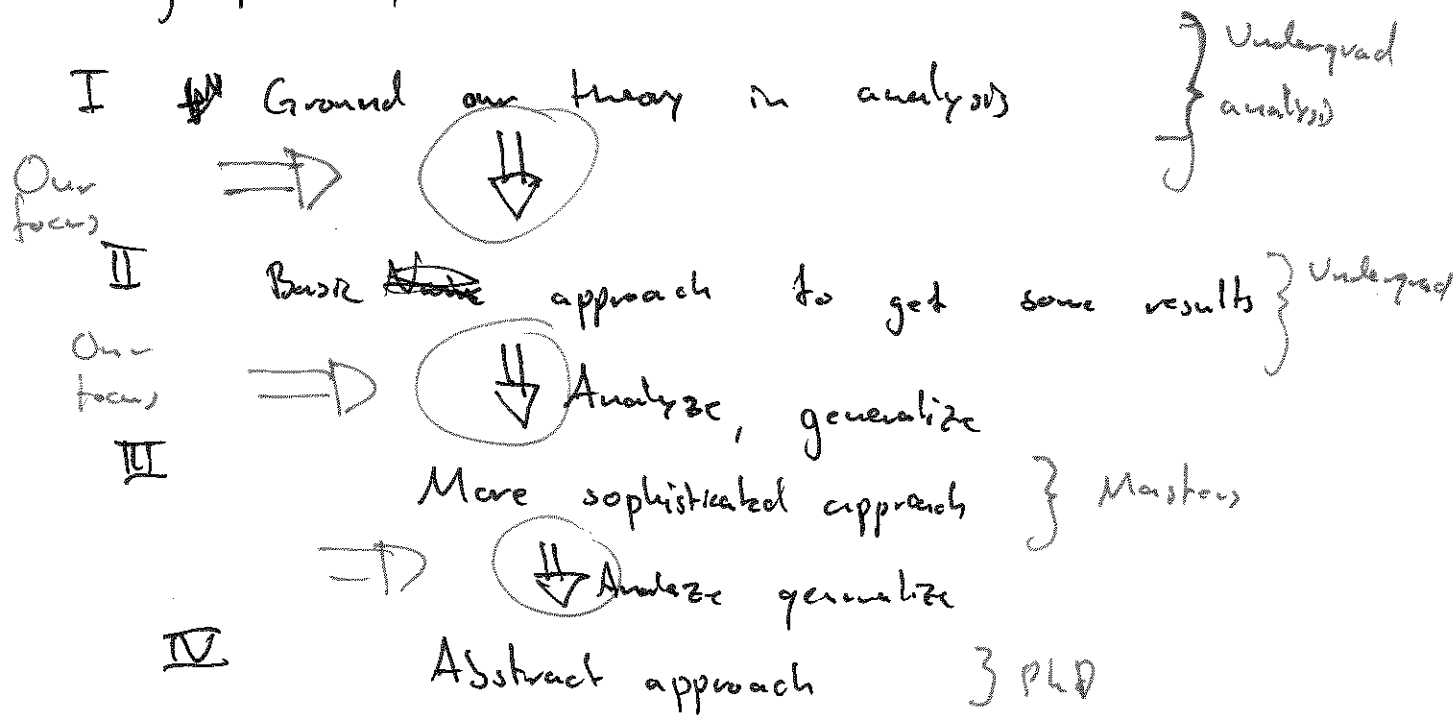 I Ground our theory in analysis } Undergrad analysis
Our focus ⇒ ⇓
II Basic approach to get some results } Undergrad
Our focus ⇒ ⇓ Analyze, generalize
III More sophisticated approach } Masters
⇒ ⇓ Analaze generalize
IV Abstract approach } PhD